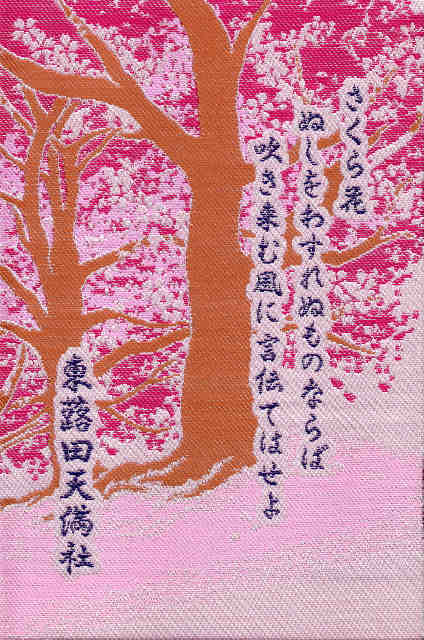 さくら花
ぬしをわすれぬものならば
吹き来む風に言伝てはせよ
東蕗田天満社